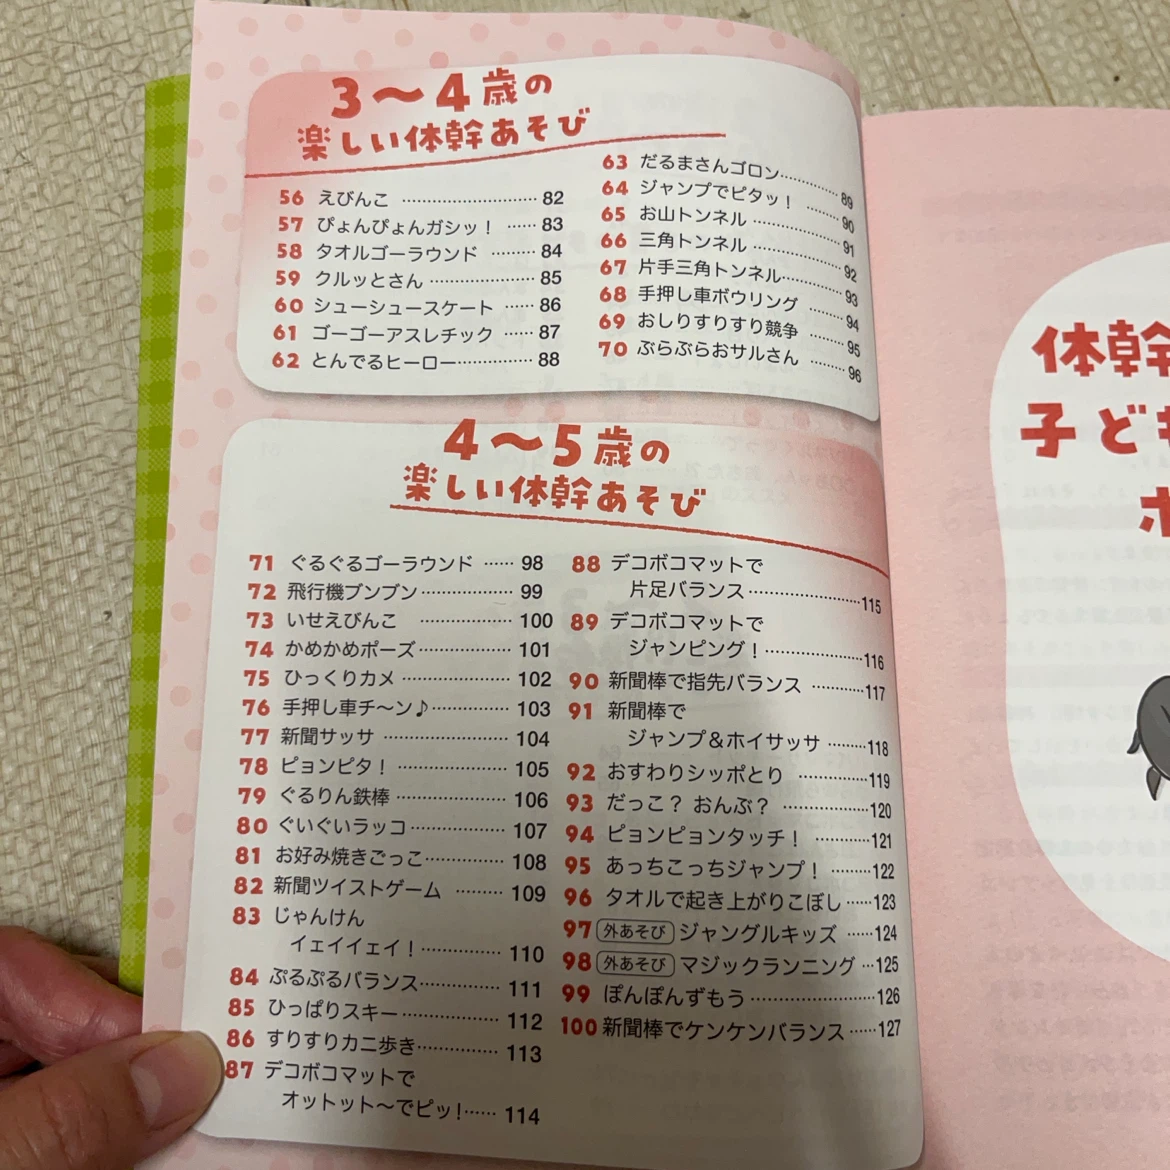 3〜4歳の
楽しい体幹あそび
56 えびんこ ……………………… 82
57 ぴょんぴょんガシッ！ …… 83
58 タオルゴーラウンド ……… 84
59 クルッとさん …………… 85
60 シューシュースケート …… 86
61 ゴーゴーアスレチック …… 87
62 とんでるヒーロー…………… 88
63 だるまさんゴロン………… 89
64 ジャンプでピタッ！ ……… 90
65 お山トンネル …………… 91
66 三角トンネル …………… 92
67 片手三角トンネル………… 93
68 手押し車ボウリング ……… 94
69 おしりすりすり競争 ……… 95
70 ぶらぶらおサルさん ……… 96
4〜5歳の
楽しい体幹あそび
71 ぐるぐるゴーラウンド …… 98
72 飛行機ブンブン…………… 99
73 いせえびんこ …………… 100
74 かめかめポーズ…………… 101
75 ひっくりカメ …………… 102
76 手押し車チ〜ン♪………… 103
77 新聞サッサ ……………… 104
78 ピョンピタ！ …………… 105
79 ぐるりん鉄棒 …………… 106
80 ぐいぐいラッコ…………… 107
81 お好み焼きごっこ………… 108
82 新聞ツイストゲーム ……… 109
83 じゃんけん
イェイイェイ！………… 110
84 ぷるぷるバランス………… 111
85 ひっぱりスキー…………… 112
86 すりすりカニ歩き………… 113
87 デコボコマットで
オットット〜でピッ！…… 114
88 デコボコマットで
片足バランス……………… 115
89 デコボコマットで
ジャンピング！…………… 116
90 新聞棒で指先バランス ……… 117
91 新聞棒で
ジャンプ＆ホイサッサ ……… 118
92 おすわりシッポとり ……… 119
93 だっこ？ おんぶ？ ………… 120
94 ピョンピョンタッチ！ …… 121
95 あっちこっちジャンプ！ …… 122
96 タオルで起き上がりこぼし …… 123
97 外あそび ジャングルキッズ …… 124
98 外あそび マジックランニング … 125
99 ぽんぽんずもう ……………… 126
100 新聞棒でケンケンバランス …… 127
体幹
子ども